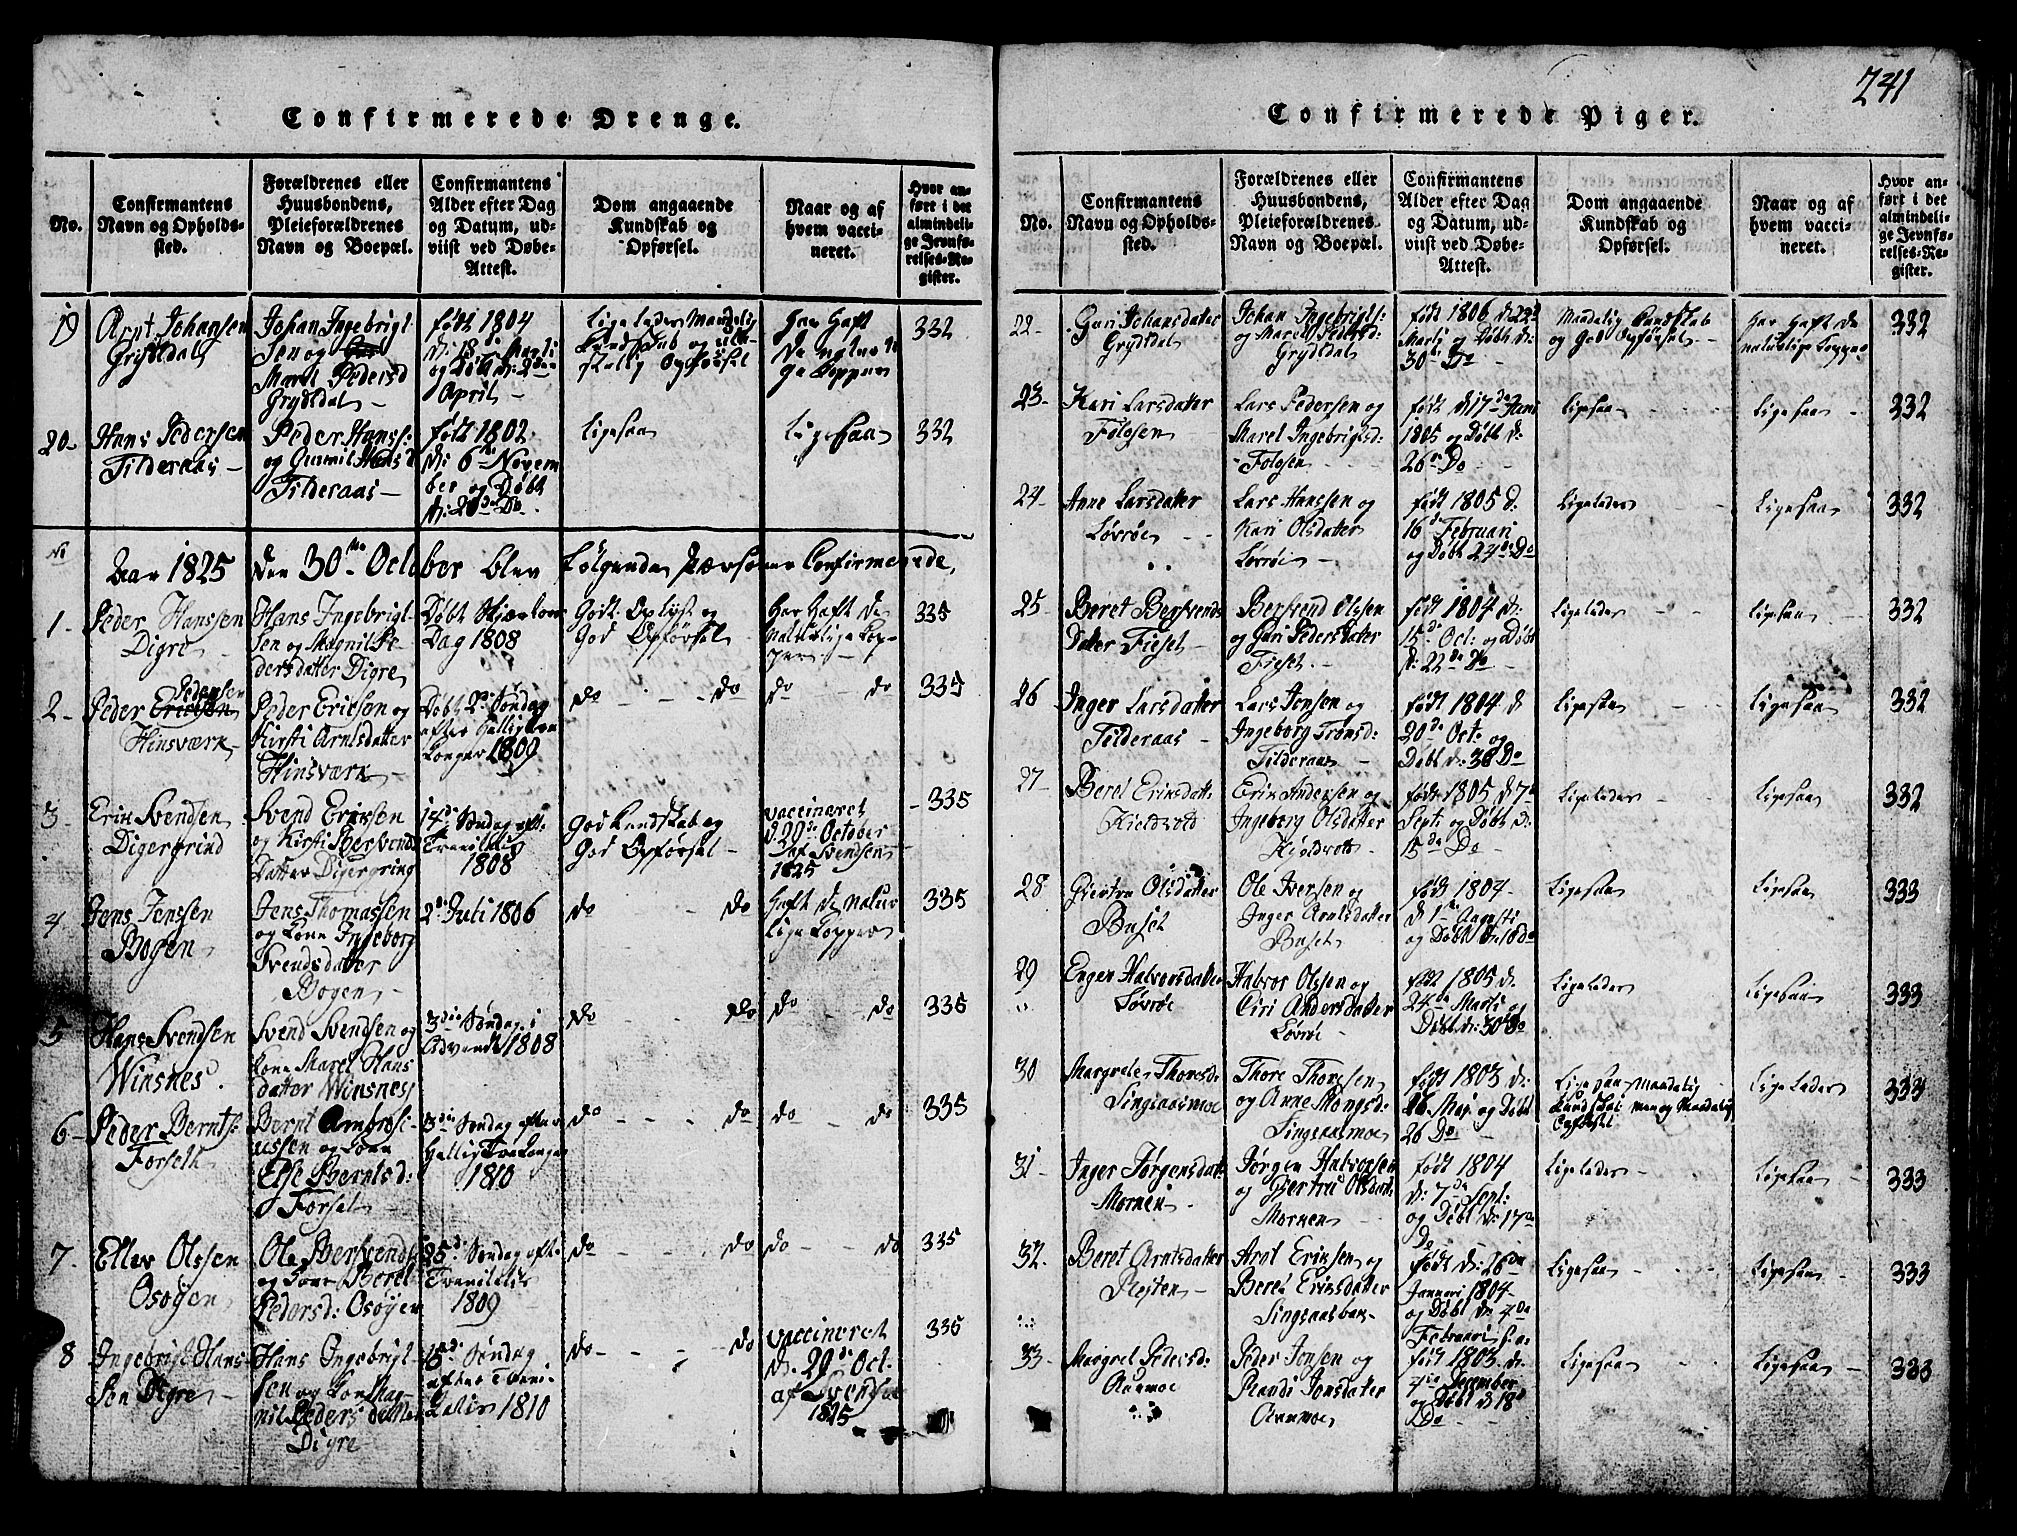 241
Confirmerede Drenge.
No.
Confirmantens
Navn og Opholds-
sted.
Forældrenes eller
Huusbondens,
Pleieforældrenes
Navn og Boepæl.
Confirmantens
Alder efter Dag
og Datum, ud-
viist ved Døbe-
Attest.
Dom angaaende
Kundskab og
Opførsel.
Naar og af
hvem vacci-
neret.
Hvor an-
ført i det
almindeli-
ge Jevnfø-
relses-Re-
gister.
19
Arnt Johansen
Grydtdal
Johan Ingebrigt-
sen og
Maret Pedersd
Grydtdal
født 1804
d: 18de Marti
og Døbt d: 2den
April
Ligeledes Maadelig
Kundskab og
Opførsel
har haft
de naturli
ge Kopper
332
20
Hans Pedersen
Tilderaas
Peder Hanss:
og Gunnil Hansd
Tilderaas
født 1802
d: 6te Novem
ber og Døbt
d: 20de Do
Ligesaa
Ligesaa
332
No
Aar 1825 den 30te October blev følgende Personer Confirmerede,
1
Peder Hanssen
Digre
Hans Ingebrigt-
sen og Magnil Pe
dersdatter Digre
Døbt Skjærtors
Dag 1808
Godt Oplyst og
God Opførsel
Har haft de
Naturlige Kop-
per
335
2
Peder Pedersen
Hinsværk
Peder Ericsen og
Kirsti Arntsdatter
Hinsværk
Døbt 2de Søndag
efter Hellig tre
Konger 1809
do do
do do
335
3
Erik Svendsen
Digergrind
Svend Ericsen
og Kirsti Bersvends
datter Digergrind
14de Søndag eft:
Trinitatis
1808
God Kundskab og
God Opførsel
vaccineret
d 29de October
af Svendsen
1825
335
4
Jens Jenssen
Bogen
Jens Thomassen
og Kone Ingeborg
Svendsdatter
Bogen
2de Juli 1806
do do
haft de natur
lige Kopper
335
5
Hans Svendsen
Winsnes
Svend Svendsen og
Kone Maret Hans
datter Winsnes
3die Søndag i
Advendt 1808
do do
do do
335
6
Peder Bernts:
Forseth
Bernt Ambrosi-
ussen og Kone
Else Berntsd:
Forset
3die Søndag efter
Hellig Tre Konger
1810
do do
do do
335
7
Ellev Olssen
Osøyen
Ole Bersvends
og Kone Beret
Pedersd: Osøyen
25de Søndag eft:
Trinitatis
1809
do do
do do
335
8
Ingebrigt Hans-
sen Digre
Hans Ingebrigt-
sen og Kone Mag-
nil Pedersdatter
Digre
15de Søndag
efter Trini-
tatis 1810
do do
vaccineret
d: 29de Oct.
af Svendsen
1825
335
Confirmerede Piger.
No.
Confirmantens
Navn og Opholds-
sted.
Forældrenes eller
Huusbondens,
Pleieforældrenes
Navn og Boepæl.
Confirmantens
Alder efter Dag
og Datum, ud-
viist ved Døbe-
Attest.
Dom angaaende
Kundskab og
Opførsel.
Naar og af
hvem vacci-
neret.
Hvor an-
ført i det
almindeli-
ge Jevnfø-
relses-Re-
gister.
22
Guri Johansdatter
Grydtdal
Johan Ingebrigts:
og Maret Pedersd:
Grydtdal
født 1806 d: 22de
Marti og Døbt d:
30te Do
Maadelig Kundskab
og God Opførsel
har haft de
naturlige Kopper
332
23
Kari Larsdatter
Folosen
Lars Pedersen og
Maret Ingebrigtsd:
Folosen
født d 17de Juni
1805 og Døbt d:
26de Do
Ligesaa
Ligesaa
332
24
Anne Larsdatter
Løvrøe
Lars Hanssen og
Kari Olsdatter
Løvrøe
født 1805 d:
16de Februari
og Døbt 24de Do
Ligeledes
Ligesaa
332
25
Beret Bersvends
datter Fieset
Bersvend Olssen
og Guri Pedersdatter
Fieset
født 1804 d:
15de Oct: og Døbt
d: 22de Do
Ligeledes
Ligesaa
332
26
Inger Larsdatter
Tilderaas
Lars Jonsen og
Ingeborg Tronsd:
Tilderaas
født 1804 d:
20de Oct: og
Døbt d: 30 Do
Ligesaa
Ligesaa
332
27
Beret Eriksdatt:
Kieldvold
Erik Andersen og
Ingeborg Olsdatter
født 1805 d 7de
Sept: og Døbt d:
15de Do
Ligeledes
Ligesaa
332
28
Giertru Olsdatter
Buset
Ole Iversen og
Inger Arntsdatter
Buset
født 1804
d 1ste Augusti
og Døbt d: 10 Do
Ligesaa
Ligesaa
333
29
Engen Halvorsdatter
Løvrøe
Halvor Olssen og
Siri Andersdatter
Løvrøe
født 1805 d:
24de Marti og
Døbt d: 30te Do
Ligeledes
Ligesaa
333
30
Margrete Thoresd:
Singsaasmoe
Thore Thoresen
og Anne Mongsd:
Singsaasmoe
født 1803 d:
26 Maj og Døbt
26 Do
Ligesaa Maadelig
Kundskab
Ligeledes
333
31
Inger Jørgensdat:
Mornen
Jørgen Halvorsen
og Giertru Olsdatter
Mornen
født 1804
d: 7de Sept:
og Døbt d: 17de
Do
Ligeledes
Ligesaa
333
32
Beret Arntsdatter
Arnt Eriksen og
Beret Eriksdatter
Singsaasbak
født d: 26de
Januari 1804
og Døbt d: 4de
Februari s: a:
Ligesaa
Ligesaa
333
33
Margret Pedersd:
Aunmoe
Peder Jonsen og
Randi Jonsdatter
Aunmoe
født 1803 d:
4de December
og Døbt d 18de
Do
Ligesaa
Ligesaa
333